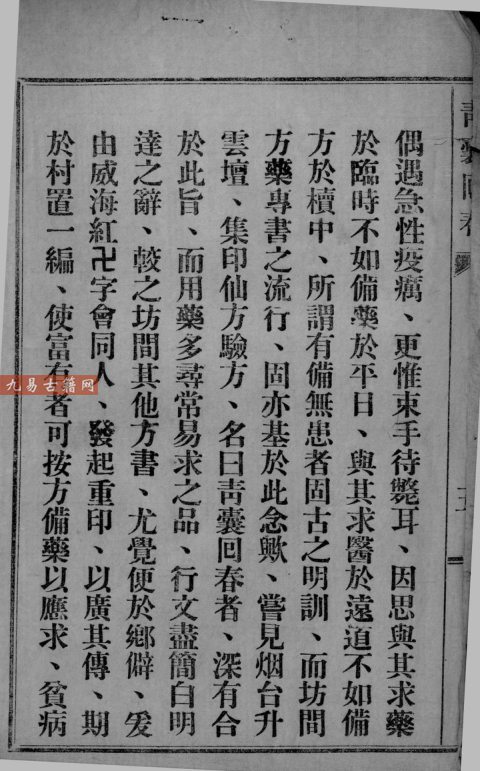 青囊回春
偶遇急性疫癘、更惟束手待斃耳、因思與其求藥
於臨時不如備藥於平日、與其求醫於遠道不如備
方於櫝中、所謂有備無患者固古之明訓、而坊間
方藥專書之流行、固亦基於此念歟、嘗見烟台升
雲壇、集印仙方驗方、名曰靑囊回春者、深有合
於此旨、而用藥多尋常易求之品、行文盡簡白明
達之辭、較之坊間其他方書、尤覺便於鄉僻、爰
由威海紅卍字會同人、發起重印、以廣其傳、期
於村置一編、使富有者可按方備藥以應求、貧病
九易古籍网